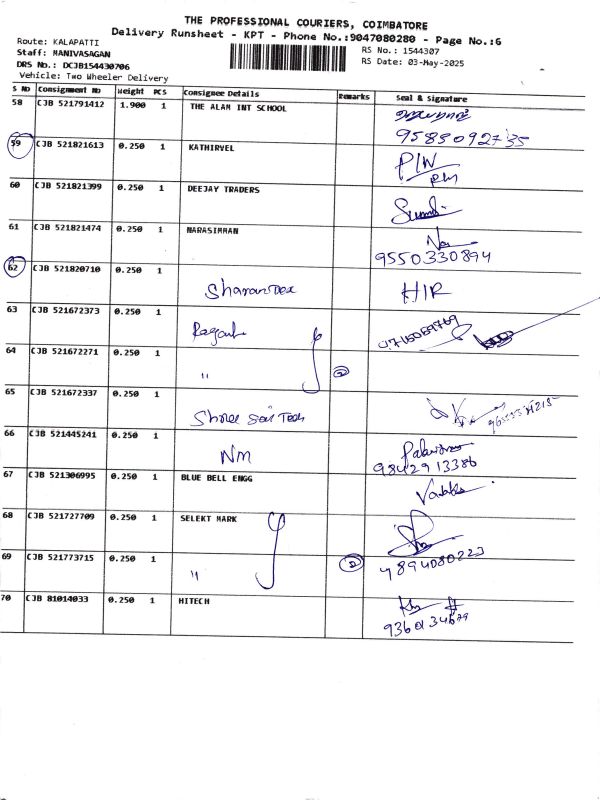 THE PROFESSIONAL COURIERS, COIMBATORE
Delivery Runsheet - KPT - Phone No.:9047080280 - Page No.:6
Route: KALAPATTI
RS No.: 1544307
Staff: MANIVASAGAN
RS Date: 03-May-2025
DRS No.: DCJB154430706
Vehicle: Two Wheeler Delivery
S No Consignment No Weight PCS Consignee Details Remarks Seal & Signature
58 CJB 521791412 1.900 1 THE ALAM INT SCHOOL
9583092735
59 CJB 521821613 0.250 1 KATHIRVEL PIW
60 CJB 521821399 0.250 1 DEEJAY TRADERS
61 CJB 521821474 0.250 1 NARASIMMAN
9550330894
62 CJB 521820710 0.250 1 Sharan Dex HIR
63 CJB 521672373 0.250 1
64 CJB 521672271 0.250 1 " 2
65 CJB 521672337 0.250 1 Shree Sai Tech
66 CJB 521445241 0.250 1 NM
9842913386
67 CJB 521306995 0.250 1 BLUE BELL ENGG
68 CJB 521727709 0.250 1 SELEKT MARK
69 CJB 521773715 0.250 1 " 2 7894080223
70 CJB 81014033 0.250 1 HITECH